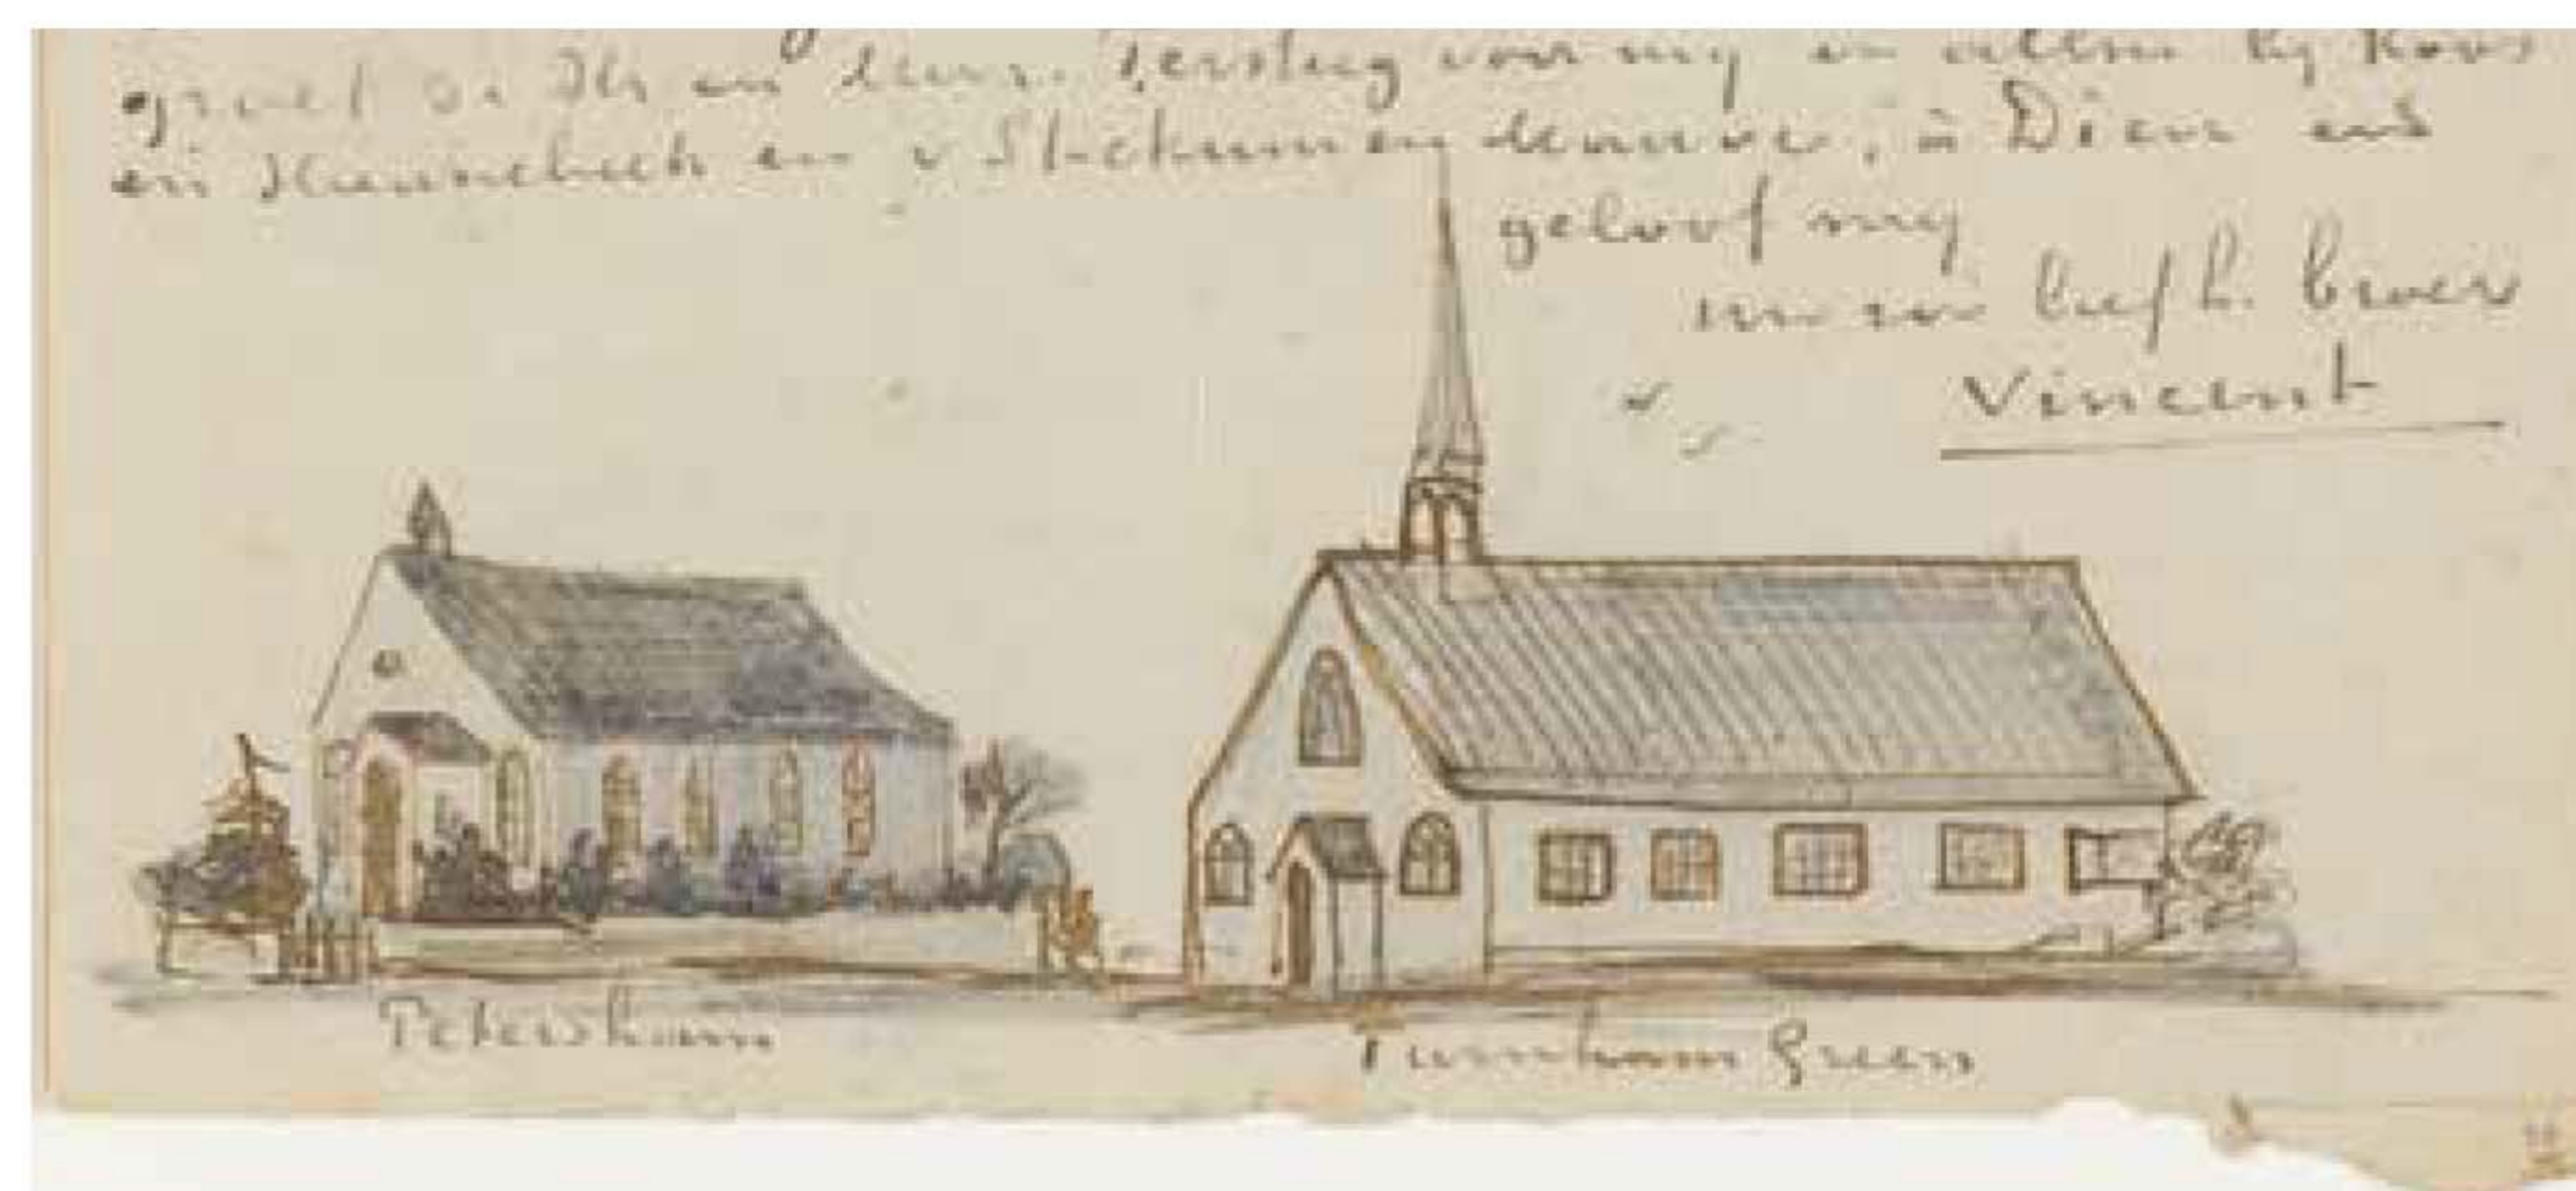 groet v. Mr en Mevr. Tersteeg voor mij en allen bij Roos
en Haanebeek en v Stockum en denwve, à Dieu en
geloof mij
uw zoo liefh. broer
Vincent
Petersham
Turnham Green